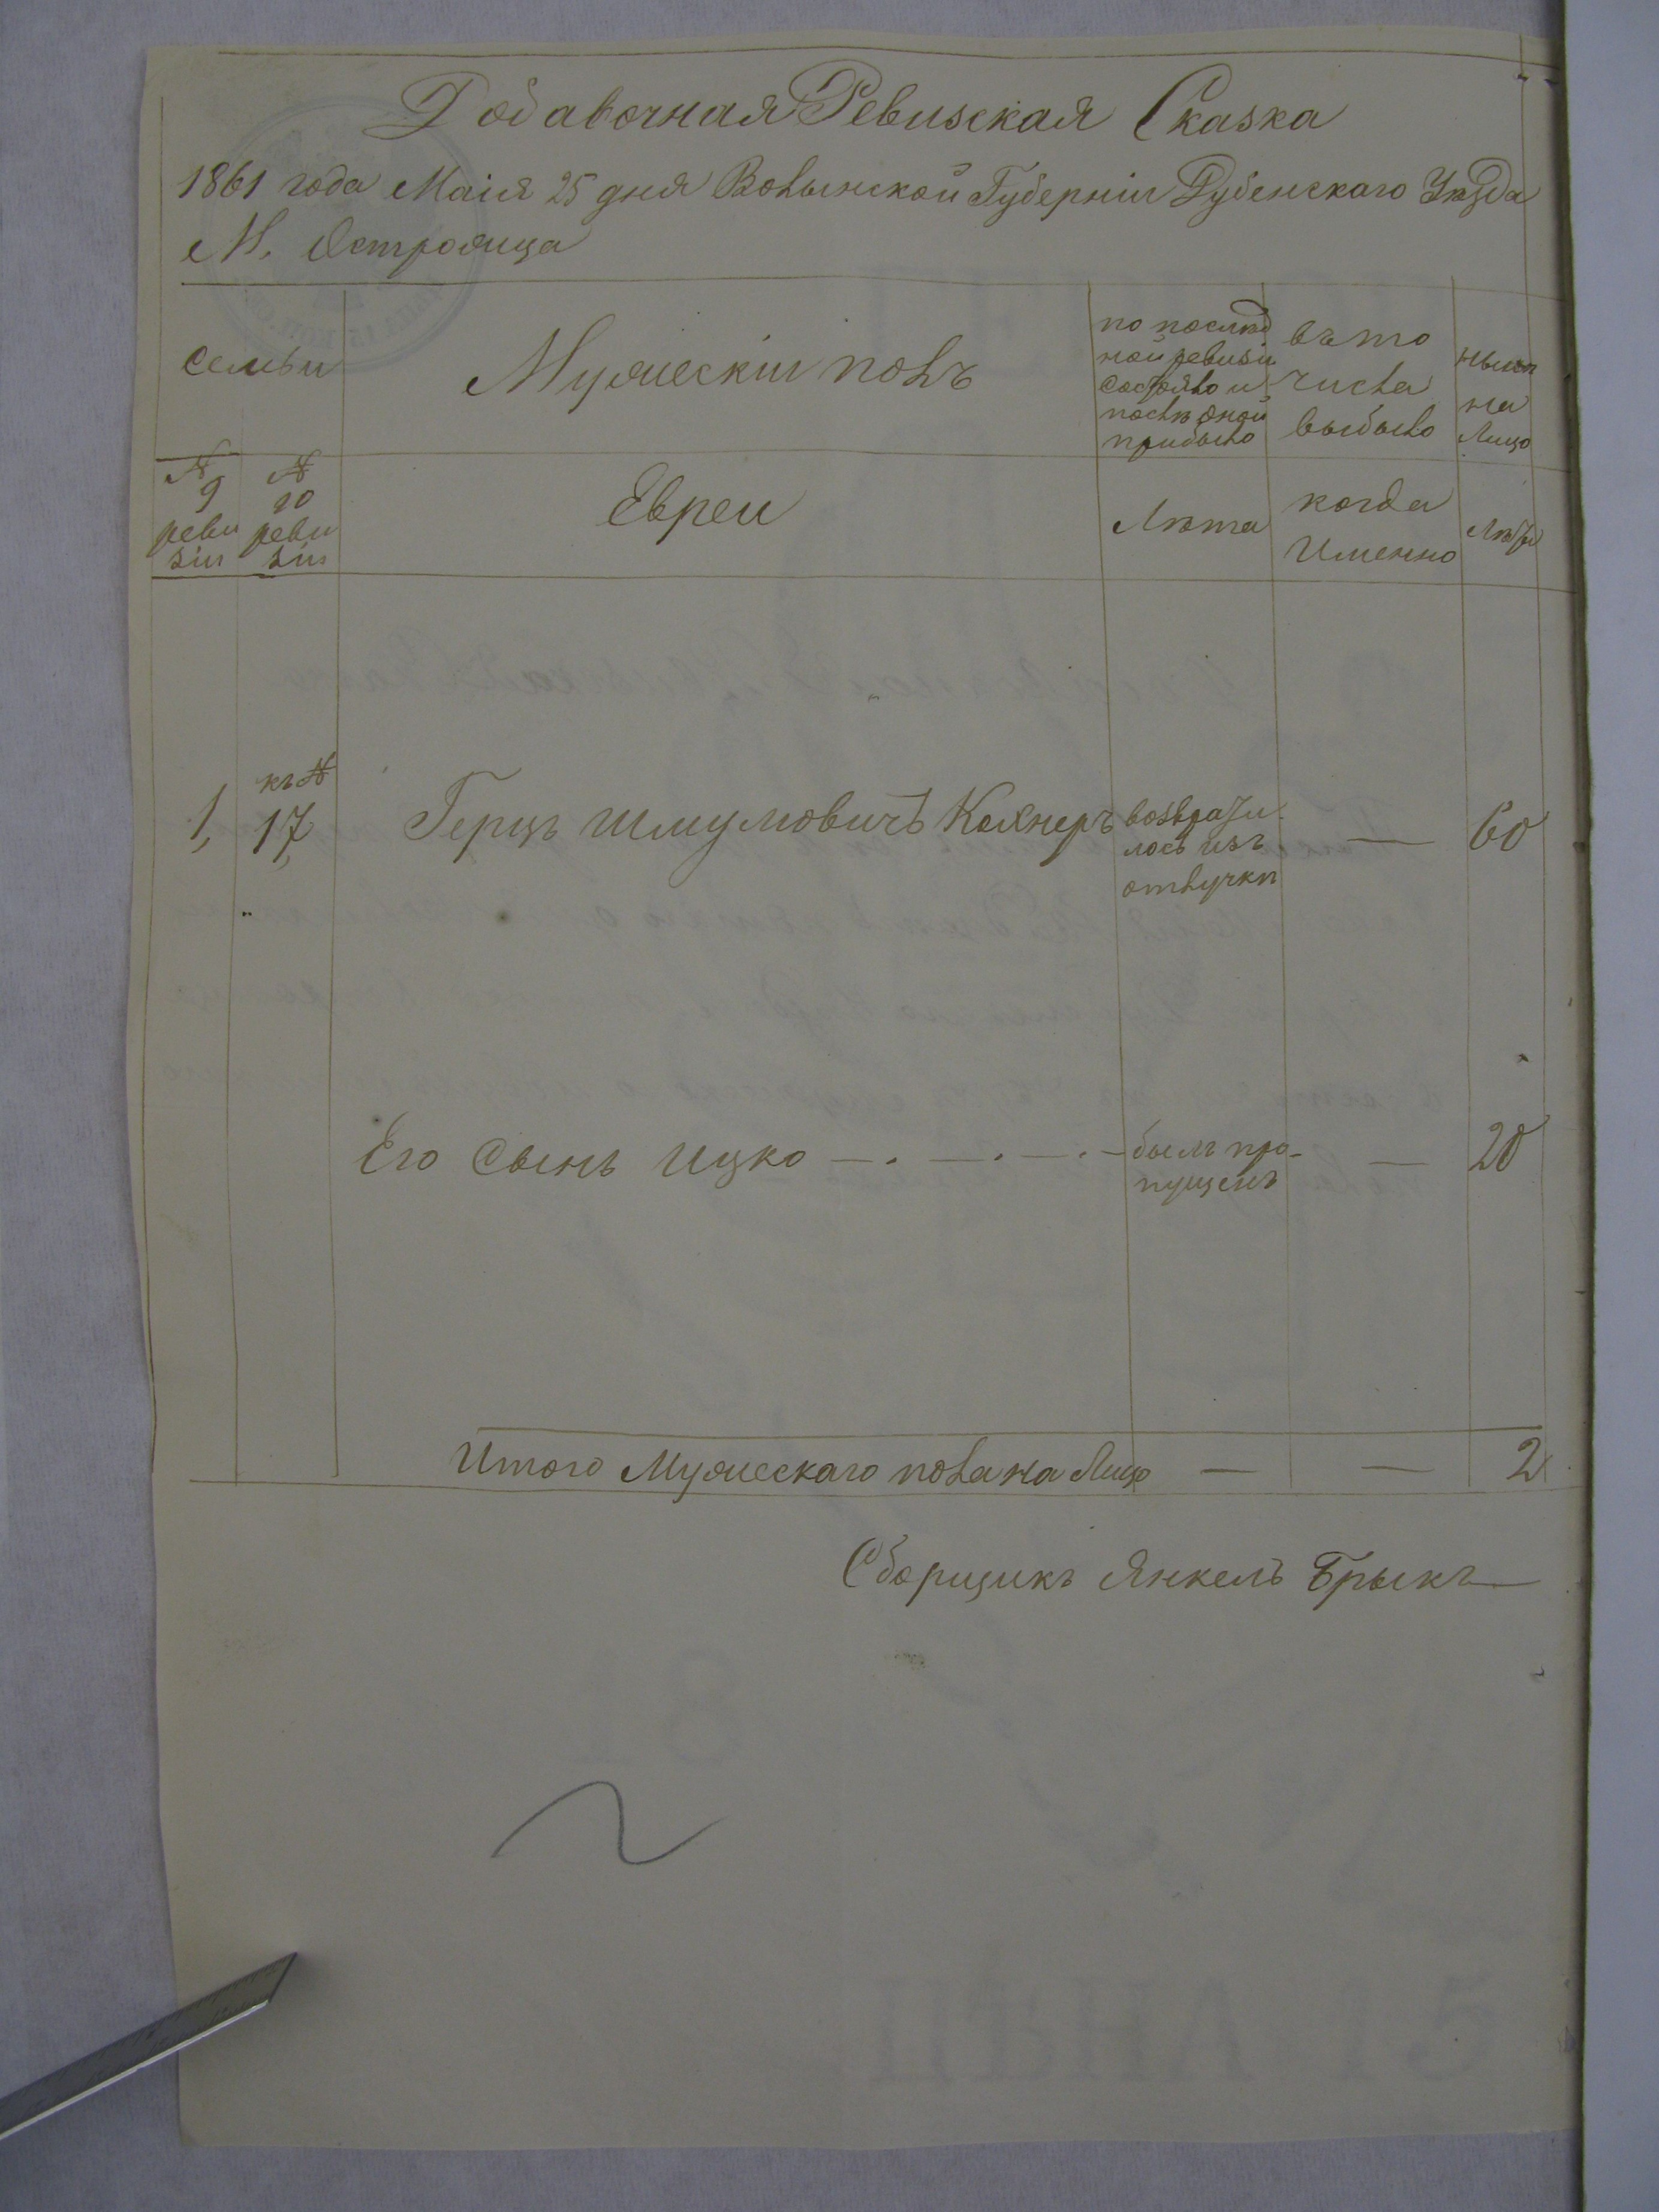 Добавочная Ревизская Сказка
1861 года Маія 25 дня Волынской Губерніи Дубенскаго Уѣзда
М. Острожица
Семьи
Мужескій полъ
по послѣд
ней ревизіи
состояло и
послѣ оной
прибыло
въ то
числа
выбыло
нынѣ
на
лицо
№ 9 ревизіи
№ 10 ревизіи
Евреи
Лѣта
когда
именно
Лѣта
къ №
1, 17, Герцъ Шмулiовичъ возврати- — 60
лось изъ
отлучки
Его Сынъ Ицко —.—.—.— былъ про- — 20
пущенъ
Итого Мужескаго пола на лицо — — 2
Сборщикъ Янкель Брыкъ